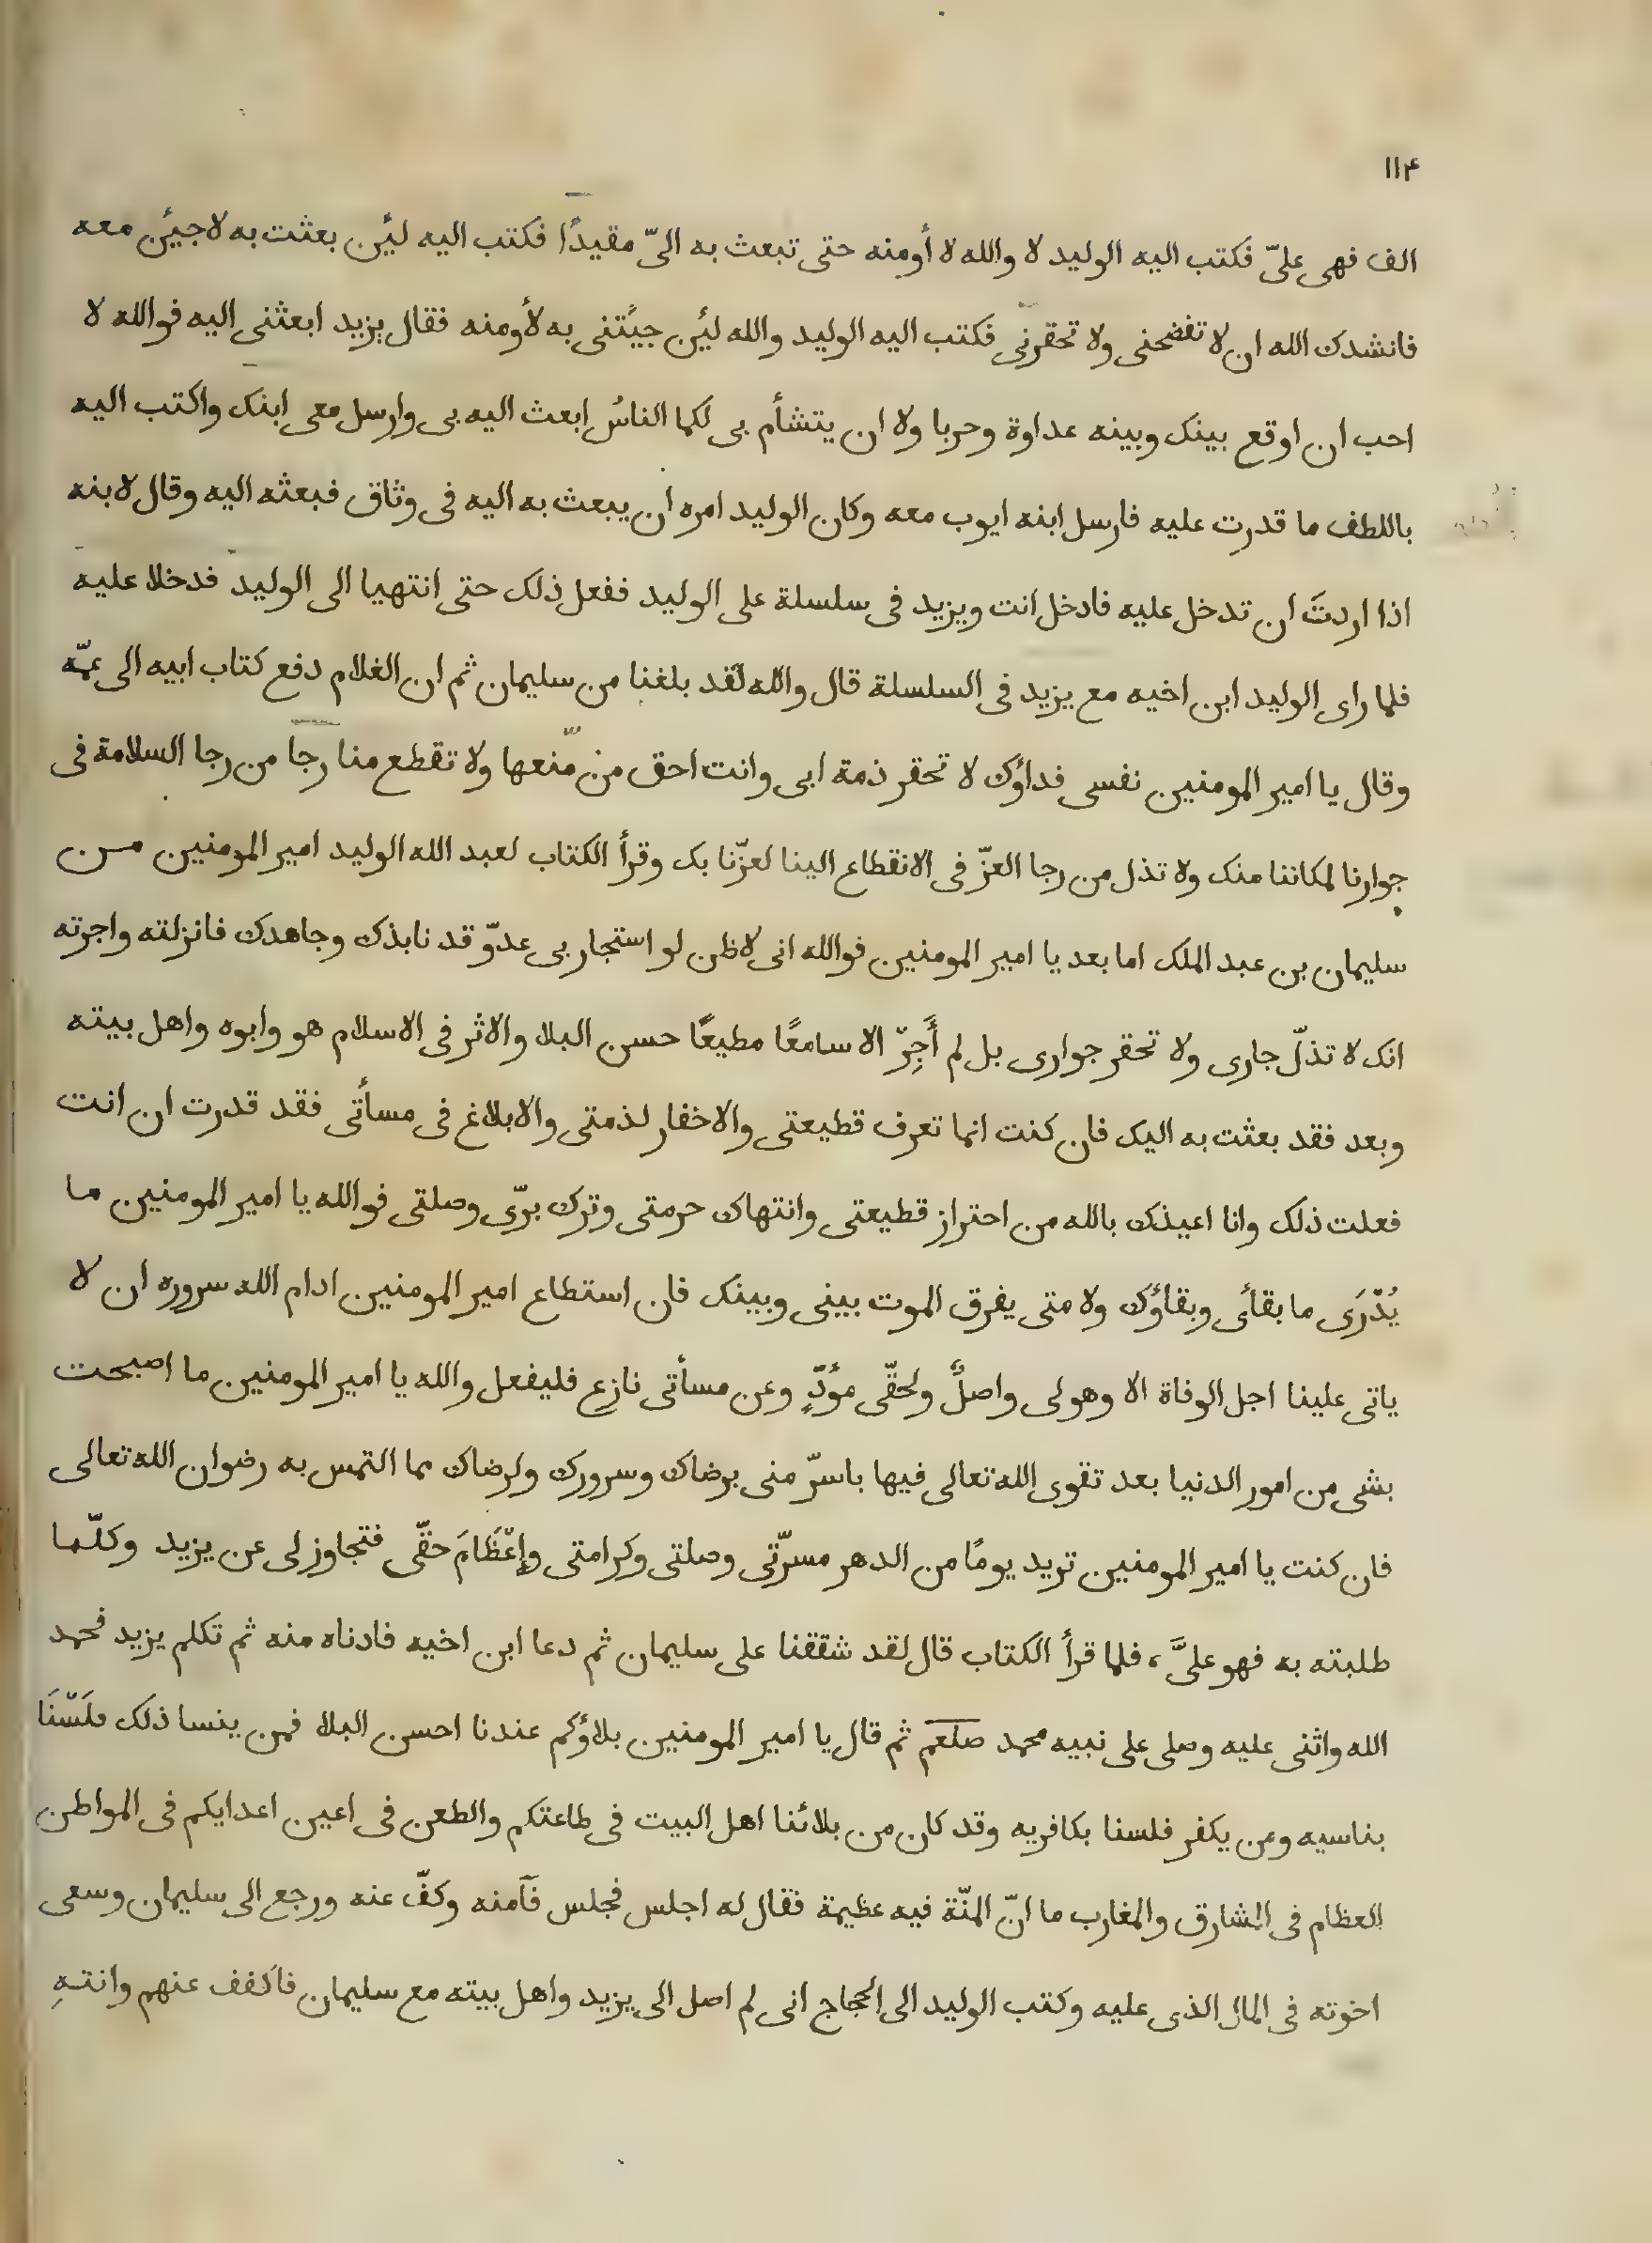 ١١٤
الف فهى علىّ فكتب اليه الوليد لا والله لا أومنه حتى تبعث به الىّ مقيدًا فكتب اليه لئن بعثت به لاجيئن معه
فانشدك الله ان لا تفضحنى ولا تحقرنى فكتب اليه الوليد والله لئن جيئتنى به لأومنه فقال يزيد ابعثنى اليه فوالله لا
احب ان اوقع بينك وبينه عداوة وحربا ولا ان يتشأم بى لكما الناسُ ابعث اليه بى وارسل معى ابنك واكتب اليه
باللطف ما قدرت عليه فارسل ابنه ايوب معه وكان الوليد امره ان يبعث به اليه فى وثاق فبعثه اليه وقال لابنه
اذا اردتَ ان تدخل عليه فادخل انت ويزيد فى سلسلة على الوليد ففعل ذلك حتى انتهيا الى الوليد فدخلا عليه
فلما راى الوليد ابن اخيه مع يزيد فى السلسلة قال والله لقد بلغنا من سليمان ثم ان الغلام دفع كتاب ابيه الى عمّه
وقال يا امير المومنين نفسى فداؤك لا تحقر ذمة ابى وانت احق من مّنعها ولا تقطع منا رجا من رجا السلامة فى
جوارنا لمكاننا منك ولا تذل من رجا العزّ فى الانقطاع الينا لعزّنا بك وقرأ الكتاب لعبد الله الوليد امير المومنين من
سليمان بن عبد الملك اما بعد يا امير المومنين فوالله انى لاظن لو استجار بى عدوّ قد نابذك وجاهدك فانزلته واجرته
انك لا تذلّ جارى ولا تحقر جوارى بل لم أَجِرّ الا سامعًا مطيعًا حسن البلا والاثر فى الاسلام هو وابوه واهل بيته
وبعد فقد بعثت به اليك فان كنت انما تعرف قطيعتى والاخفار لذمتى والابلاغ فى مسأتى فقد قدرت ان انت
فعلت ذلك وانا اعيذك بالله من احتراز قطيعتى وانتهاك حرمتى وترك برّى وصلتى فوالله يا امير المومنين ما
يُدّرَى ما بقأى وبقاؤك ولا متى يفرق الموت بينى وبينك فان استطاع امير المومنين ادام الله سروره ان لا
ياتى علينا اجل الوفاة الا وهو لى واصلٌ ولحقّى مؤدٍّ وعن مسأتى نازع فليفعل والله يا امير المومنين ما اصبحت
بشى من امور الدنيا بعد تقوى الله تعالى فيها باسرّ منى برضاك وسرورك ولرضاك مما التمس به رضوان الله تعالى
فان كنت يا امير المومنين تريد يومًا من الدهر مسرّتى وصلتى وكرامتى وإعّظَامَ حقّى فتجاوز لى عن يزيد وكلّما
طلبته به فهو علىَّ، فلما قرأ الكتاب قال لقد شققنا على سليمان ثم دعا ابن اخيه فادناه منه ثم تكلم يزيد فحمد
الله واثنى عليه وصلى على نبيه محمد صلعم ثم قال يا امير المومنين بلاؤكم عندنا احسن البلا فمن ينسا ذلك فلَسّنَا
بناسيه ومن يكفر فلسنا بكافريه وقد كان من بلائنا اهل البيت فى طاعتكم والطعن فى اعين اعدايكم فى المواطن
العظام فى المشارق والمغارب ما انّ المنّة فيه عظيمة فقال له اجلس فجلس فآمنه وكفّ عنه ورجع الى سليمان وسعى
اخوته فى المال الذى عليه وكتب الوليد الى الحجاج انى لم اصل الى يزيد واهل بيته مع سليمان فاكفف عنهم وانتهِ